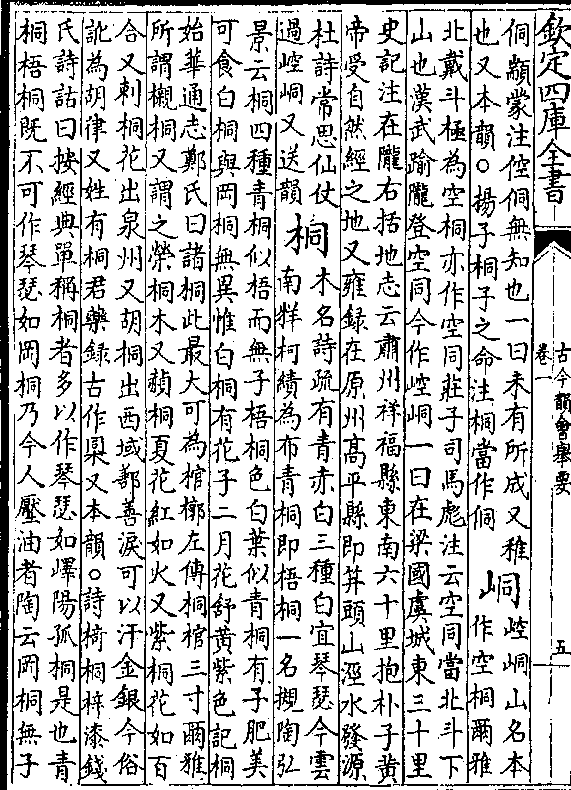 欽定四庫全書
古今韻會舉要
卷一
五
侗顓蒙注倥侗無知也一曰未有所成又稚
也又本韻○揚子桐子之命注桐當作侗
峒
崆峒山名本
作空桐爾雅
北戴斗極為空桐亦作空同莊子司馬彪注云空同當北斗下
山也漢武踰隴登空同今作崆峒一曰在梁國虞城東三十里
史記注在隴右括地志云肅州祥福縣東南六十里抱朴子黄
帝受自然經之地又雍録在原州髙平縣即笄頭山涇水發源
杜詩常思仙仗
過崆峒又送韻
桐
木名詩疏有青赤白三種白宜琴瑟今雲
南牂柯績為布青桐即梧桐一名櫬陶弘
景云桐四種青桐似梧而無子梧桐色白葉似青桐有子肥美
可食白桐與岡桐無異惟白桐有花子二月花舒黄紫色記桐
始華通志鄭氏曰諸桐此最大可為棺槨左傳桐棺三寸爾雅
所謂櫬桐又謂之榮桐木又赬桐夏花紅如火又紫桐花如百
合又刺桐花出泉州又胡桐出西域鄯善淚可以汗金銀今俗
訛為胡律又姓有桐君藥録古作𣓌又本韻○詩椅桐梓漆錢
氏詩詁曰按經典單稱桐者多以作琴瑟如嶧陽孤桐是也青
桐梧桐既不可作琴瑟如岡桐乃今人壓油者陶云岡桐無子